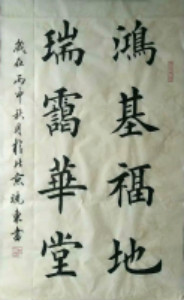 鴻基福地
瑞靄華堂
歲在丙申秋月於北京曉東書